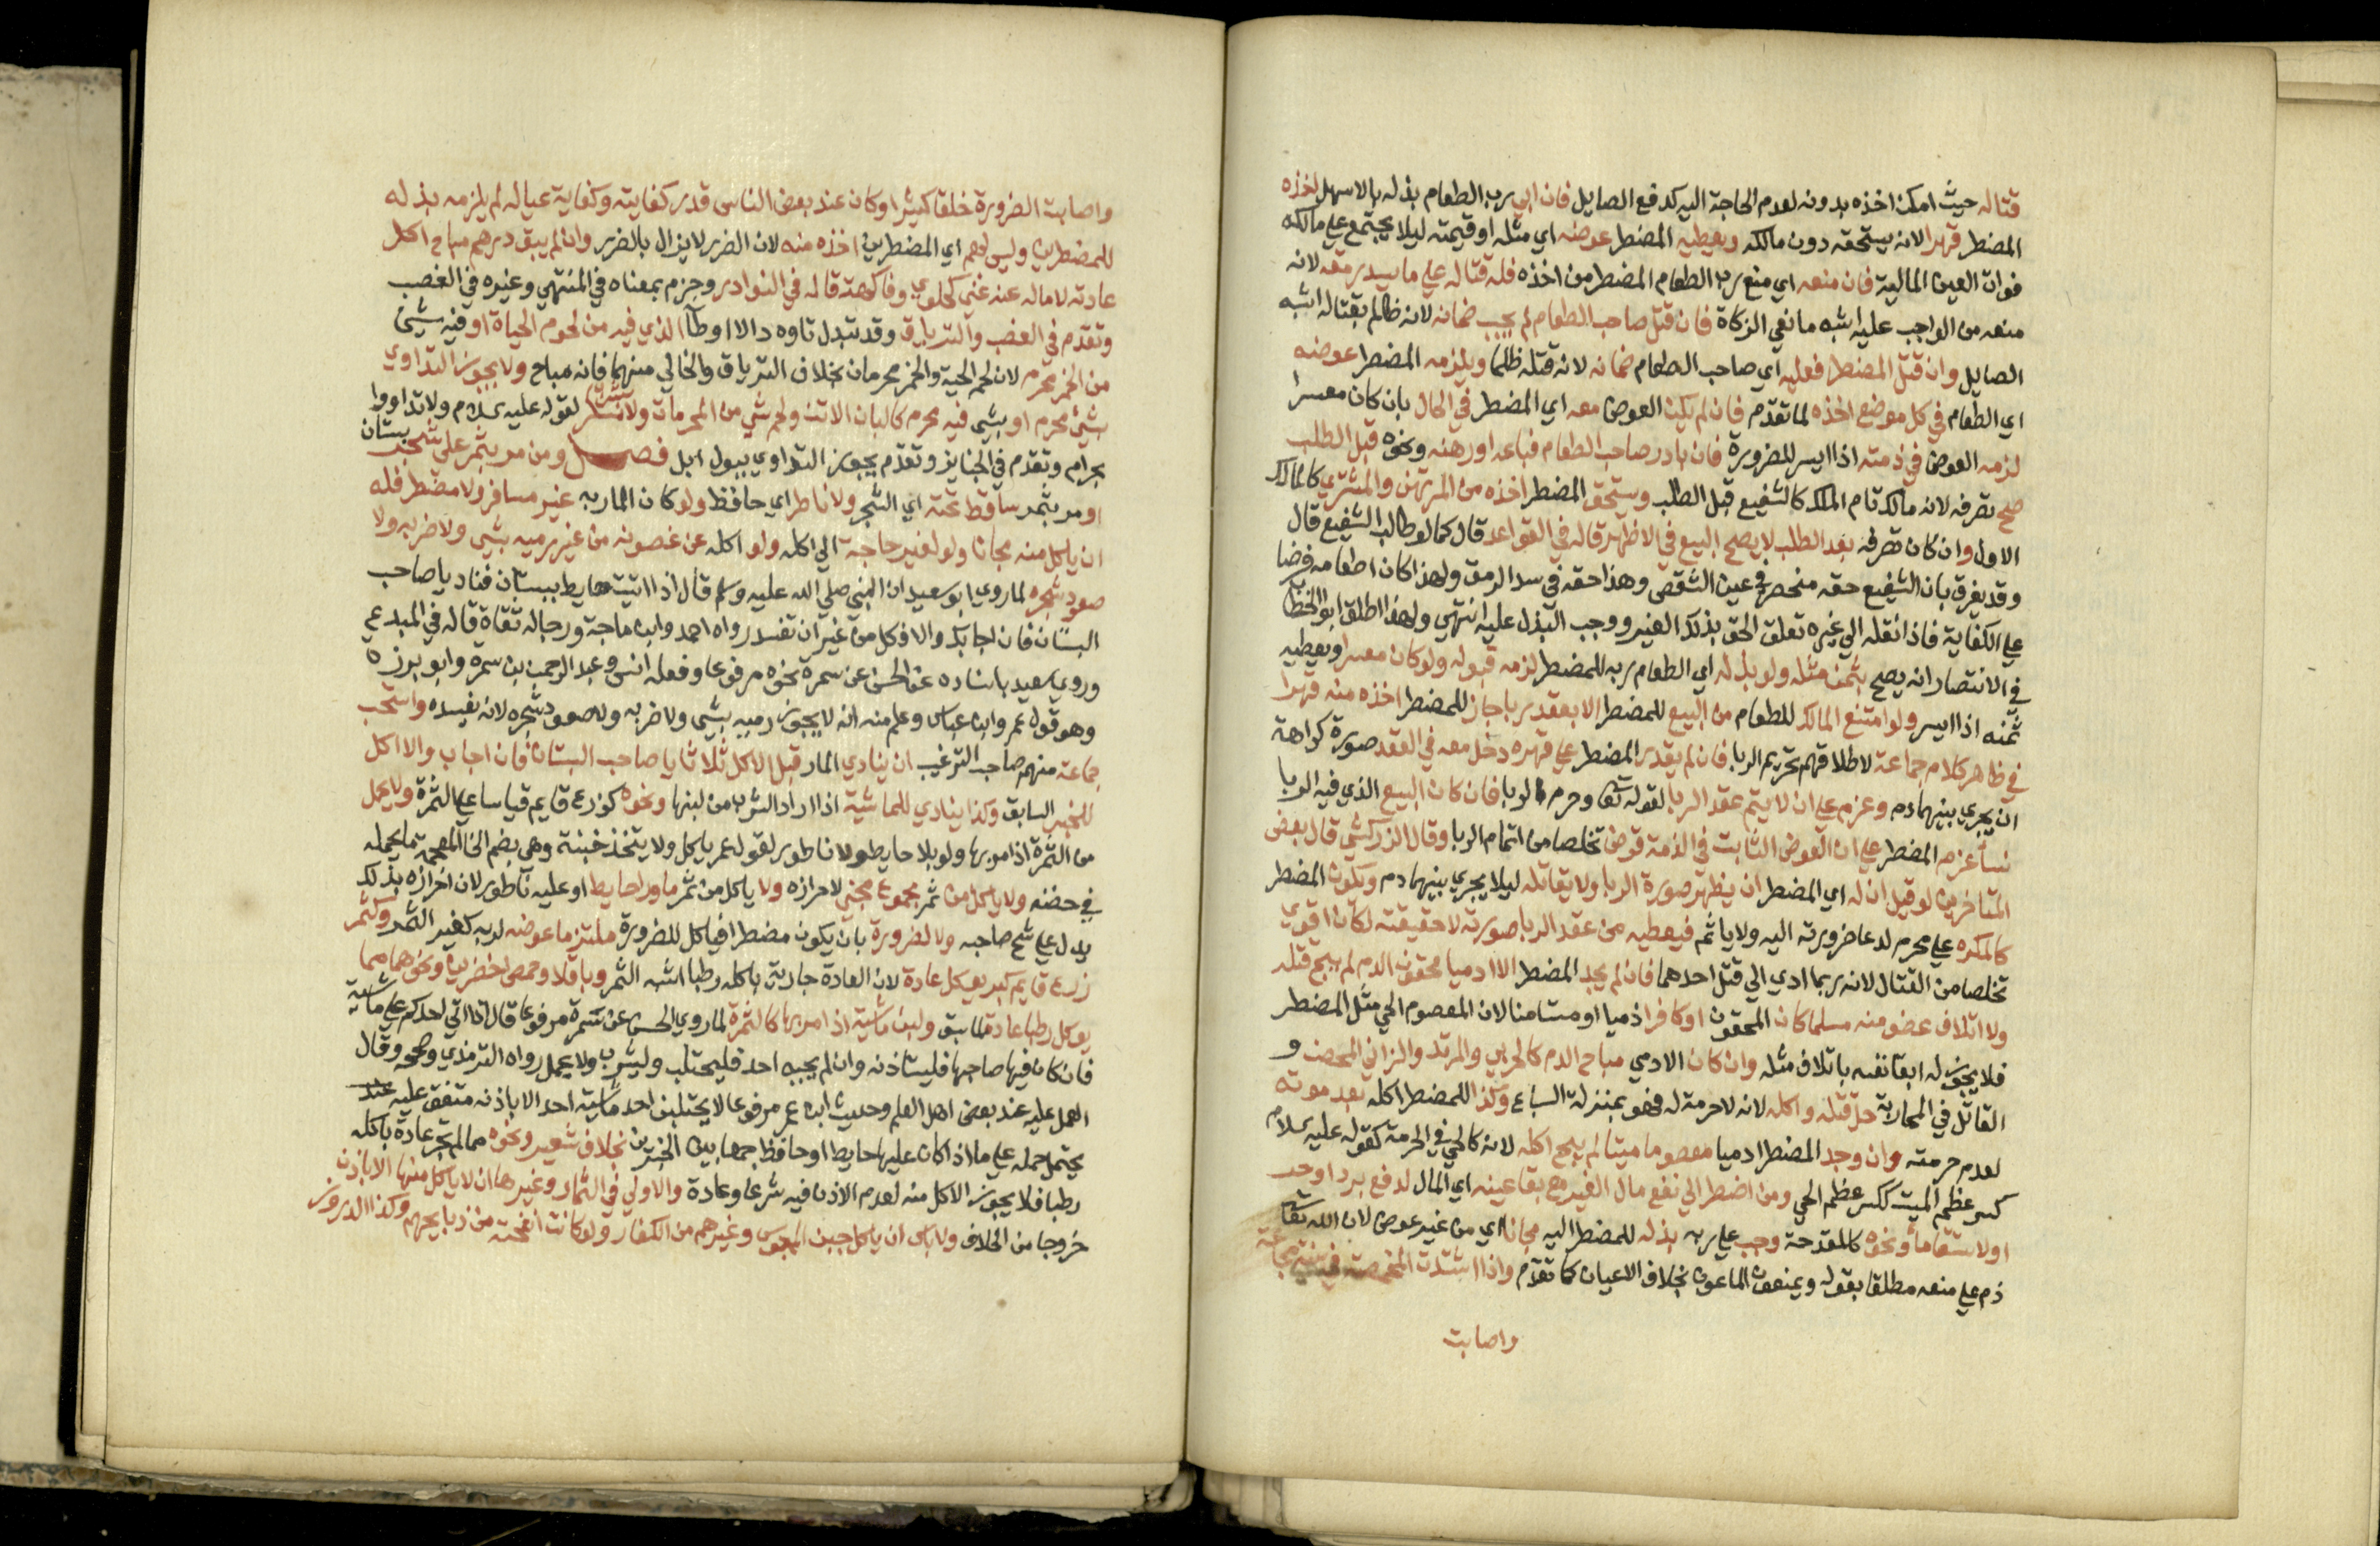 قتاله حيث امكن اخذه بدونه لعدم الحاجة اليه كدفع الصايل فان ابي رب الطعام بذله بالاسهل اخذه
المضطر قهرا لانه يستحقه دون مالكه ويعطيه المضطر عوضه اي مثله او قيمته ليلا يجتمع علي مالكه
فوات العين المالية فان منعه اي منع رب الطعام المضطر من اخذه فله قتاله علي ما يسد رمقه لانه
منعه من الواجب عليه اشبه مانعي الزكاة فان قتل صاحب الطعام لم يجب ضمانه لانه ظالم بقتاله اشبه
الصايل وان قتل المضطر فعليه اي صاحب الطعام ضمانه لانه قتله ظلما ويلزمه المضطر عوضه
اي الطعام في كل موضع اخذه لما تقدم فان لم يكن العوض معه اي المضطر في الحال بان كان معسرا
لزمه العوض في ذمته اذا ايسر للضرورة فان بادر صاحب الطعام فباعه او رهنه ونحوه قبل الطلب
صح تصرفه لانه مالك تام الملك كالشفيع قبل الطلب ويستحق المضطر اخذه من المرتهن والمشتري كالمالك
الاول وان كان تصرفه بعد الطلب لا يصح البيع في الاظهر قاله في القواعد قال كما لو طالب الشفيع قال
وقد يفرق بان الشفيع حقه منحصر في عين الشقص وهذا حقه في سد الرمق ولهذا كان اطعامه فرضا
علي الكفاية فاذا نقله الي غيره تعلق الحق بذلك الغير ووجب البذل عليه انتهي ولهذا اطلق ابو الخطاب
في الانتصار انه يصح بثمن مثله ولو بذله اي الطعام ربه للمضطر لزمه قبوله ولو كان معسرا ويعطيه
ثمنه اذا ايسر ولو امتنع المالك للطعام من البيع للمضطر الا بعقد ربا جاز للمضطر اخذه منه قهرا
في ظاهر كلام جماعة لاطلاقهم تحريم الربا فان لم يقدر المضطر علي قهره دخل معه في العقد صورة كراهة
ان يجري بينهما دم وعزم علي ان لا يتم عقد الربا لقوله تعا وحرم الربا فان كان البيع الذي فيه الربا
نسأ عزم المضطر علي ان العوض الثابت في الذمة قرض تخلصا من اتمام الربا وقال الزركشي قال بعض
المتاخرين لو قيل ان له اي المضطر ان يظهر صورة الربا ولا يقاتله ليلا يجري بينهما دم ويكون المضطر
كالمكره علي محرم لدعا ضرورته اليه ولا ياثم فيعطيه من عقد الربا صورته لا حقيقته لكان اقوي
تخلصا من القتال لانه ربما ادي الي قتل احدهما فان لم يجد المضطر الا ادميا محقون الدم لم يبح قتله
ولا اتلاف عضو منه مسلما كان المحقون او كافرا ذميا او مستامنا لان المعصوم الحي مثل المضطر
فلا يجوز له ابقا نفسه باتلاف مثله وان كان الادمي مباح الدم كالحربي والمرتد والزاني المحصن و
القاتل في المحاربة حل قتله واكله لانه لا حرمة له فهو بمنزلة السباع وكذا للمضطر اكله بعد موته
لعدم حرمته وان وجد المضطر ادميا معصوما ميتا لم يبح اكله لانه كالحي في الحرمة كقوله عليه السلام
كسر عظم الميت ككسر عظم الحي ومن اضطر الي نفع مال الغير مع بقا عينه اي المال لدفع برد او حر
او لاستقا ماء ونحوه كالمقدحة وجب علي ربه بذله للمضطر اليه مجانا اي من غير عوض لان الله تعا
ذم علي منعه مطلقا بقوله ويمنعون الماعون بخلاف الاعيان كما تقدم واذا اشتدت المخمصة في سنة مجاعة
واصابت
واصابت الضرورة خلقا كثيرا وكان عند بعض الناس قدر كفايته وكفاية عياله لم يلزمه بذله
للمضطرين وليس لهم اي المضطرين اخذه منه لان الضرر لا يزال بالضرر وان لم يبق درهم مباح اكل
عادته لا ماله عنه غني كحلوي وفاكهة قاله في النوادر وجزم بمعناه في المنتهي وغيره في الغصب
وتقدم في الغصب والترياق وقد تبدل تاوه دالا او طآ الذي فيه من لحوم الحياة او فيه شيئ
من الخمر محرم لان لحم الحية والخمر محرمان بخلاف الترياق والخالي منهما فانه مباح ولا يجوز التداوي
بشيئ محرم او بشي فيه محرم كالبان الاتن ولحم شي من المحرمات ولا بشرب مسكر لقوله عليه السلام ولا تداووا
بحرام وتقدم في الجنايز وتقدم يجوز التداوي ببول ابل فصل ومن مر بثمر علي شجر بستان
او مر بثمر ساقط تحته اي الشجر ولا ناطر اي حافظ ولو كان المار به غير مسافر ولا مضطر فله
ان ياكل منه مجانا ولو لغير حاجة الي اكله ولو اكله عن غصونه من غير رميه بشي ولا ضربه ولا
صعود شجره لما روي ابو سعيد ان النبي صلي الله عليه وسلم قال اذا اتيت حايط بستان فناد يا صاحب
البستان فان اجابك والا فكل من غير ان تفسد رواه احمد وابن ماجة ورجاله ثقاة قاله في المبدع
وروي سعيد باسناده عن الحسن عن سمرة نحوه مرفوعا وفعله انس وعبد الرحمن بن سمرة وابو برزة
وهو قول عمر وابن عباس وعلم منه انه لا يجوز رميه بشي ولا ضربه ولا صعود شجره لانه يفسده واستحب
جماعة منهم صاحب الترغيب ان ينادي المار قبل الاكل ثلاثا يا صاحب البستان فان اجاب والا اكل
للخبر السابق وكذا ينادي للماشية اذا اراد الشرب من لبنها ونحوه كزرع قايم قياسا علي الثمرة ولا يحمل
من الثمرة اذا مر بها ولو بلا حايط ولا ناطور لقول عمر ياكل ولا يتخذ خبنة وهي بضم الخا المعجمة ما يحمله
في حضنه ولا ياكل من ثمر مجموع مجني لاحرازه ولا ياكل من ثمر ما ورا حايط او عليه ناطور لان احرازه بذلك
يدل علي شح صاحبه ولا لضرورة بان يكون مضطرا فياكل للضرورة ملتزما عوضه لربه كغير الثمر وكثمر
زرع قايم كبر يوكل عادة لان العادة جارية باكله رطبا اشبه الثمر وباقلا وحمص اخضرين ونحوهما مما
يوكل رطبا عادة لما سبق ولبن ماشية اذا مر بها كالثمرة لما روي الحسن عن سمرة مرفوعا قال اذا اتي احدكم علي ماشية
فان كان فيها صاحبها فليستاذنه وان لم يجبه احد فليحتلب وليشرب ولا يحمل رواه الترمذي وصححه وقال
العمل عليه عند بعض اهل العلم وحديث ابن عمر مرفوعا لا يحتلبن احد ماشية احد الا باذنه متفق عليه
يحتمل حمله علي ما اذا كان عليها حايط او حافظ جمعا بين الخبرين بخلاف شعير ونحوه مما لم تجر عادة باكله
رطبا فلا يجوز الاكل منه لعدم الاذن فيه شرعا وعادة والاولي في الثمار وغيرها ان لا ياكل منها الا باذن
خروجا من الخلاف ولا باس ان ياكل جبن المجوس وغيرهم من الكفار ولو كانت انفحته من ذبايحهم وكذا الدروز